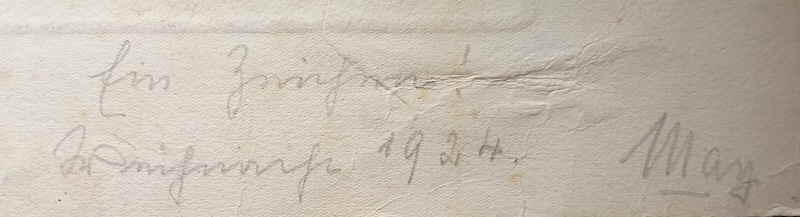 Ein Zeichen!
Weihnacht 1924. May